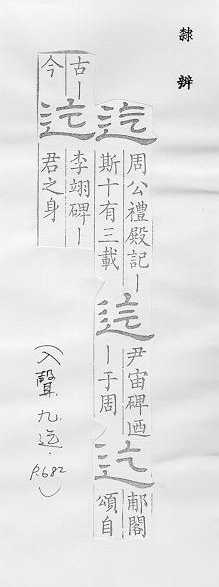 隸辨
迄
周公禮殿記｜
斯十有三載
迄
尹宙碑迺
｜于周
迄
郙閣
頌自
古｜
今
迄
李翊碑｜
君之身
(入聲.九迄.P.682)